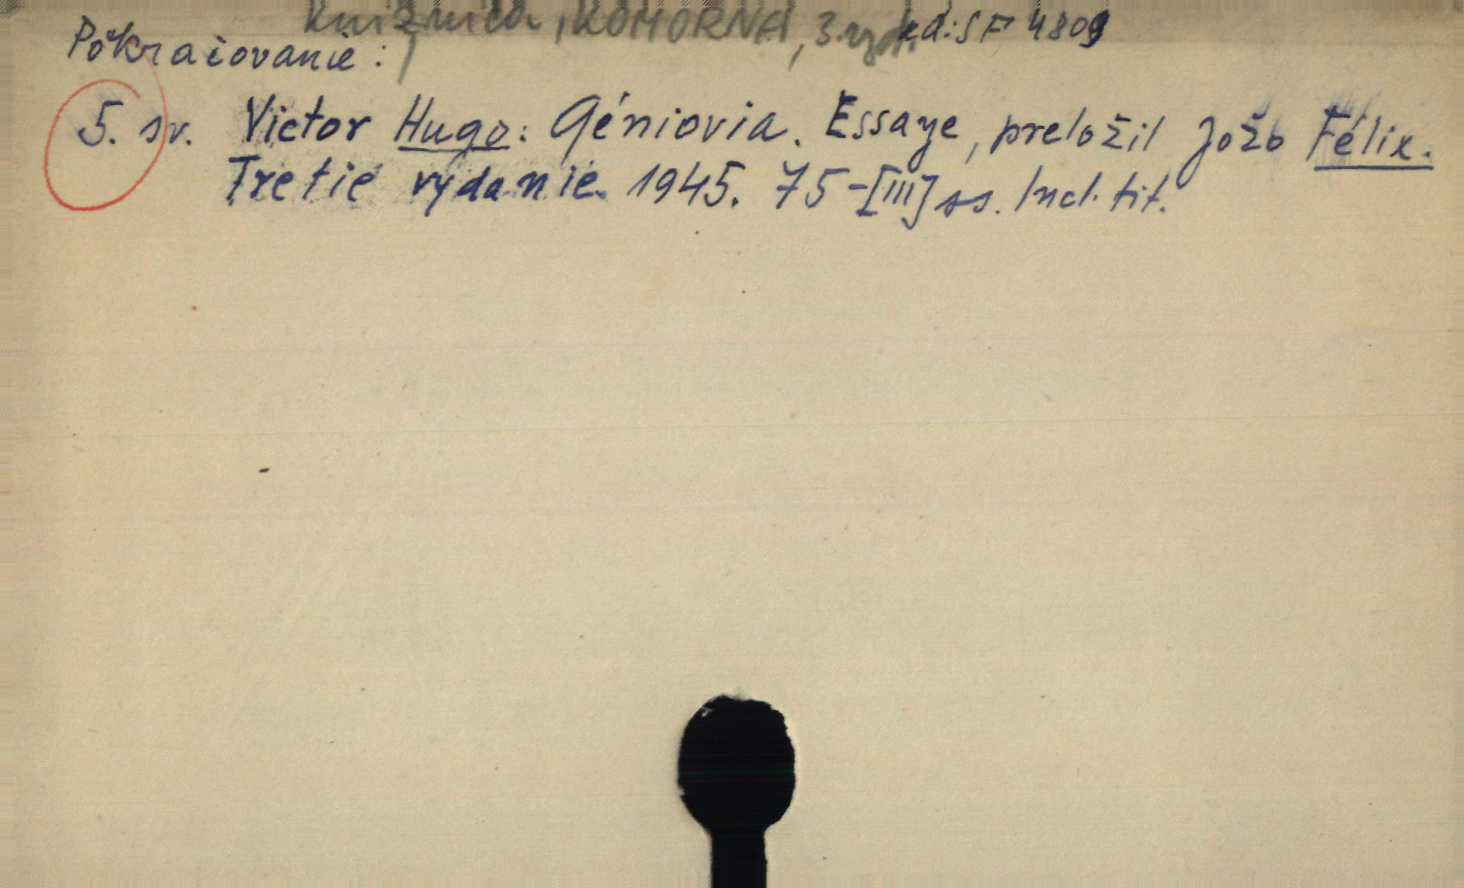 Knižnica, KOMORNÁ, 3. vyd. kd: SF 4809
Pokračovanie:
5. sv. Victor Hugo: Géniovia. Essaye, preložil Jožo Félix.
Tretie vydanie. 1945. 75-[III] ss. Incl. tit.